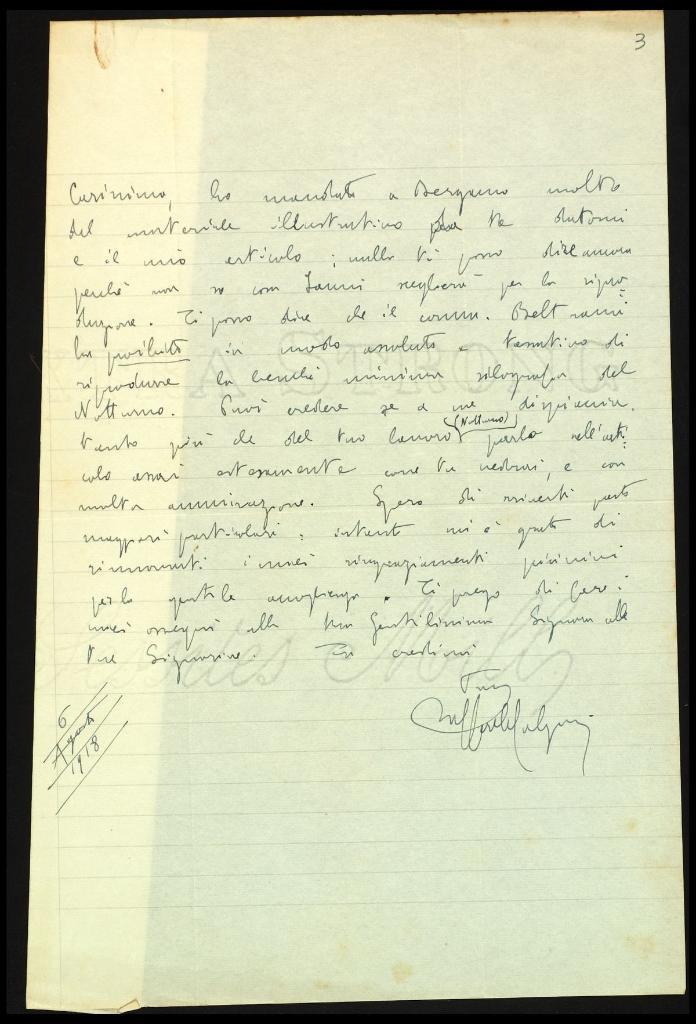 3
Carissimo, ho mandato a Bergamo molto
del materiale illustrativo da te datomi
e il mio articolo ; nulla ti posso dire ancora
perché non so cosa sceglierà per la ripro=
duzione. Ti posso dire che il comm. Beltrami
ha proibito in modo assoluto e tassativo di
riprodurre la benché minima silografia del
Notturno. Puoi credere se a me dispiaccia.
tanto più che del tuo lavoro (Notturno) parlo nell'arti=
colo assai estesamente come tu vedrai, e con
molta ammirazione. Spero di scriverti presto
maggiori particolari ; intanto mi è grato di
rinnovarti i miei ringraziamenti
per la gentile accoglienza. Ti prego di fare i
miei ossequi alla tua gentilissima Signora alle
tue Signorine. credimi
Tuo
6
Agosto
1918